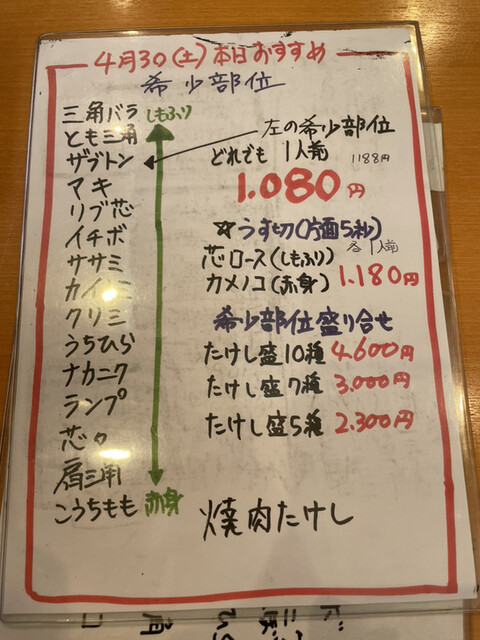 4月30(土)本日おすすめ
希少部位
三角バラ しもふり
とも三角
ザブトン
マキ
リブ芯
イチボ
ササミ
カイノミ
クリミ
うちひら
ナカニク
ランプ
芯々
肩三角
こうちもも 赤身
左の希少部位
どれでも 1人前 1188円
1.080円
☆うす切(片面5秒)
各1人前
芯ロース(しもふり)
カメノコ(赤身) 1.180円
希少部位盛り合せ
たけし盛10種 4.600円
たけし盛7種 3.000円
たけし盛5種 2.300円
焼肉たけし